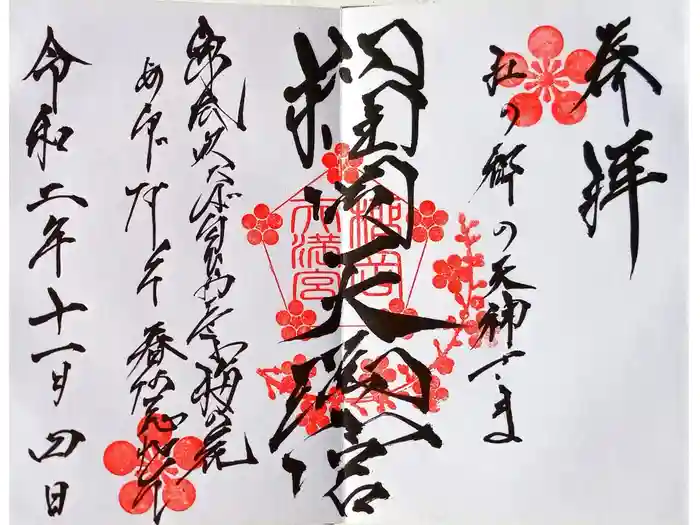 奉拝
杜の都の天神さま
榴岡天満宮
榴岡
天満宮
東風吹かば匂ひおこせよ梅の花
あるじなしとて 春な忘れそ
令和二年十一月四日